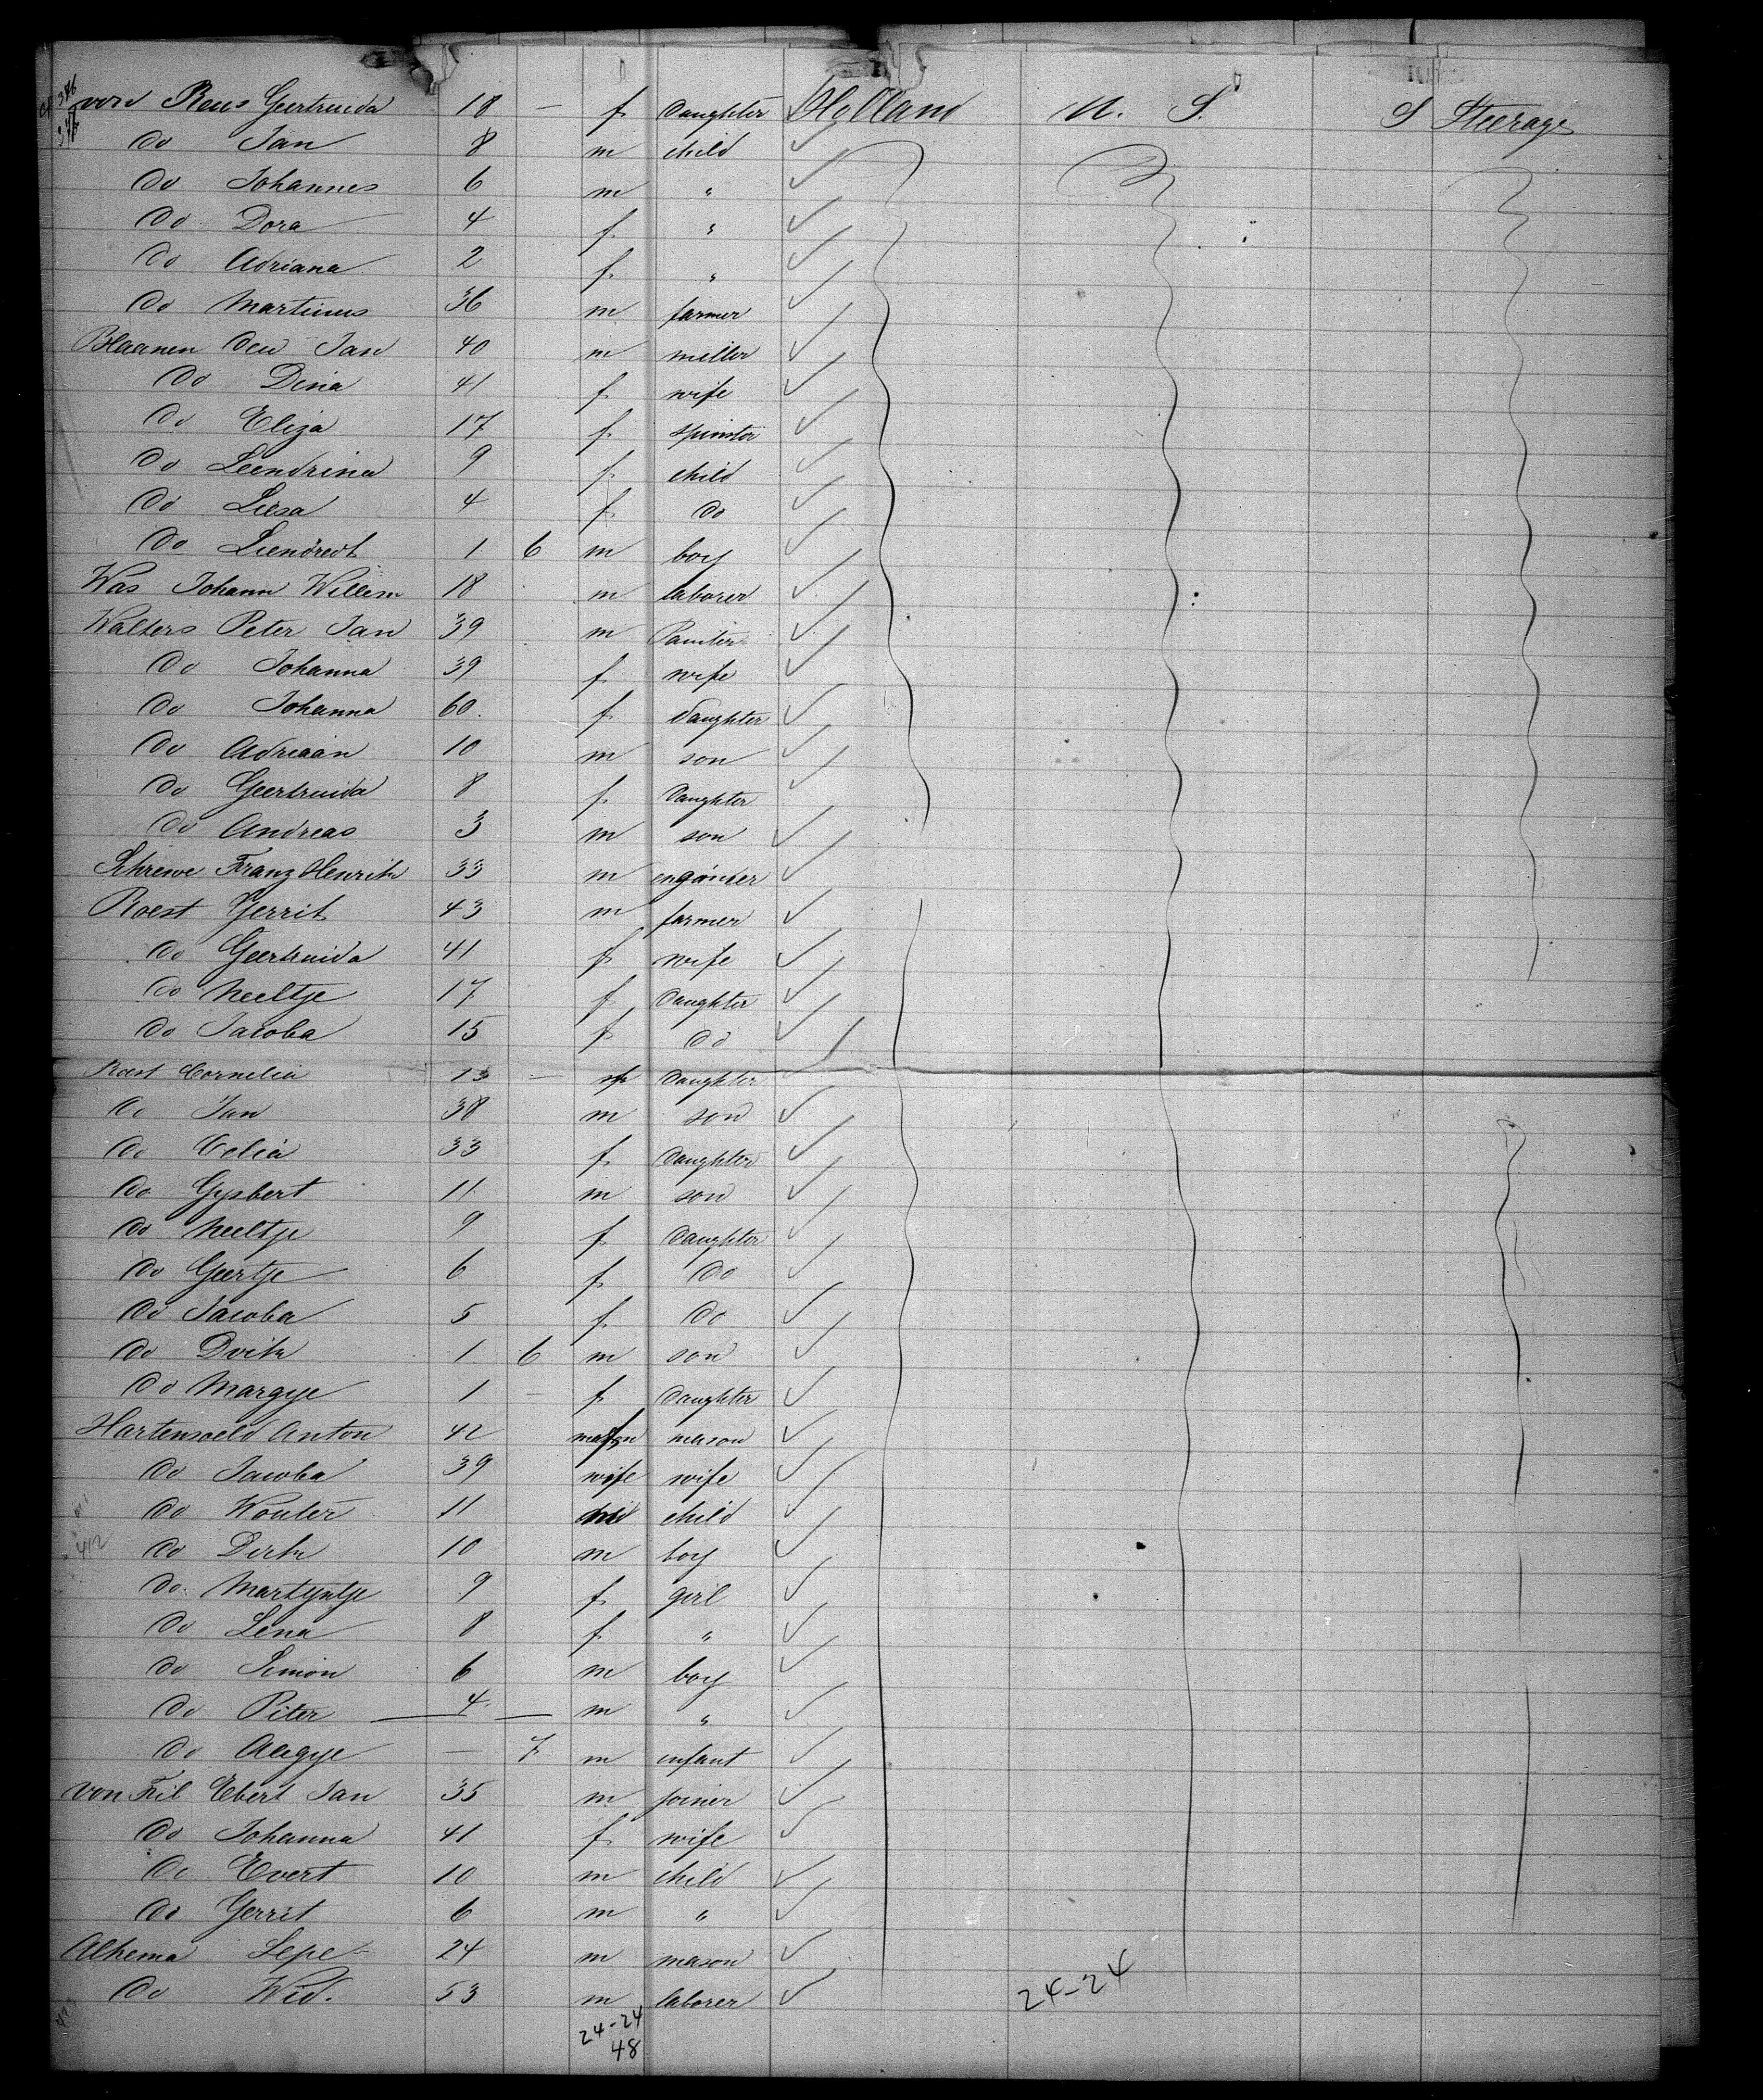 von Reus Geertruida 18 — f Daughter Holland U. S. S Steerage
Do Jan 8 m child
Do Johannes 6 m "
Do Dora 4 f "
Do Adriana 2 f "
Do Martinus 36 m farmer
Blaanen Den Jan 40 m miller
Do Dina 41 f wife
Do Eliza 17 f spinster
Do Leendrina 9 f child
Do Liesa 4 f do
Do Liendredt 1 6 m boy
Was Johann Willem 18 m laborer
Walters Peter Jan 39 m Painter
Do Johanna 39 f wife
Do Johanna 60 f daughter
Do Adriaan 10 m son
Do Geertruida 8 f Daughter
Do Andreas 3 m son
Schrewe Franz Henrik 33 m engineer
Roest Gerrit 43 m farmer
Do Geertruida 41 f wife
Do Neeltje 17 f Daughter
Do Jacoba 15 f Do
Roest Cornelia 13 — f Daughter
Do Jan 38 m son
Do Celia 33 f Daughter
Do Gysbert 11 m son
Do Neeltje 9 f Daughter
Do Geertje 6 f Do
Do Jacoba 5 f Do
Do Dvik 1 6 m son
Do Margye 1 — f Daughter
Hartensveld Anton 42 mason
Do Jacoba 39 wife wife
Do Wouter 11 child
Do Dirk 10 m boy
Do Martyntje 9 f girl
Do Lena 8 f "
Do Simon 6 m boy
Do Piter 4 — m "
Do Aagye — 7 m infant
von Tril Ebert Jan 35 m joiner
Do Johanna 41 f wife
Do Evert 10 m child
Do Gerrit 6 m "
Alkema Sepe 24 m mason
Do Wid. 53 m laborer
24-24 24-24
48